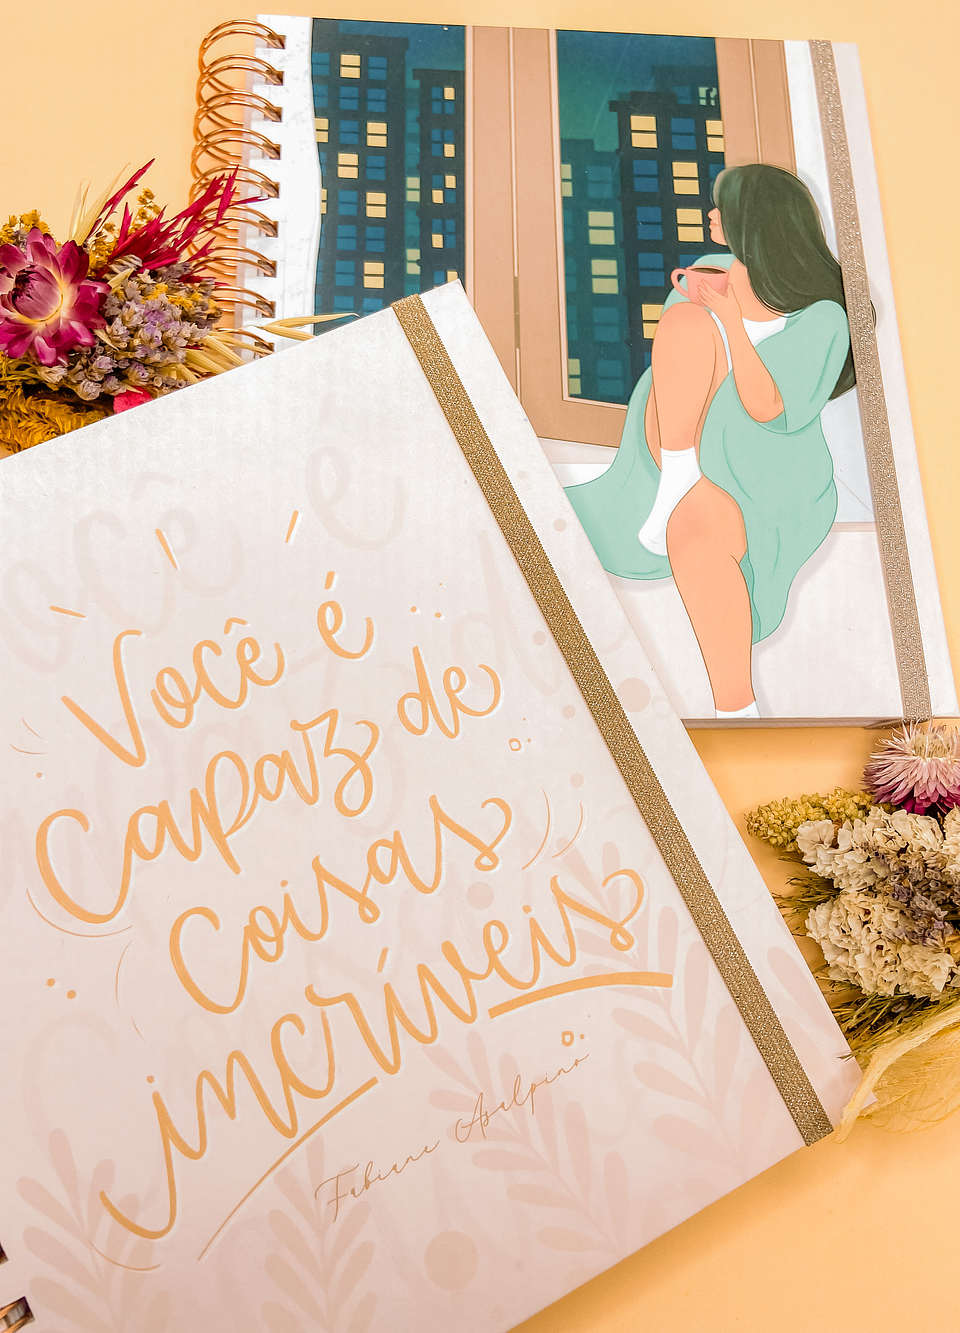 Você é
Capaz de
Coisas
incríveis
Fabiane Asalpino